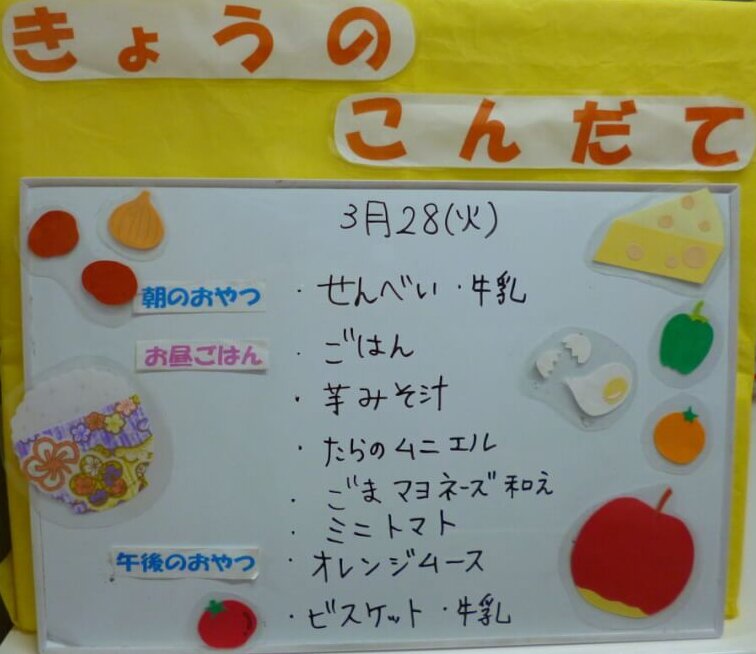 きょうの
こんだて
3月28(火)
朝のおやつ ・せんべい・牛乳
お昼ごはん ・ごはん
・芋みそ汁
・たらのムニエル
・ごまマヨネーズ和え
・ミニトマト
午後のおやつ ・オレンジムース
・ビスケット・牛乳